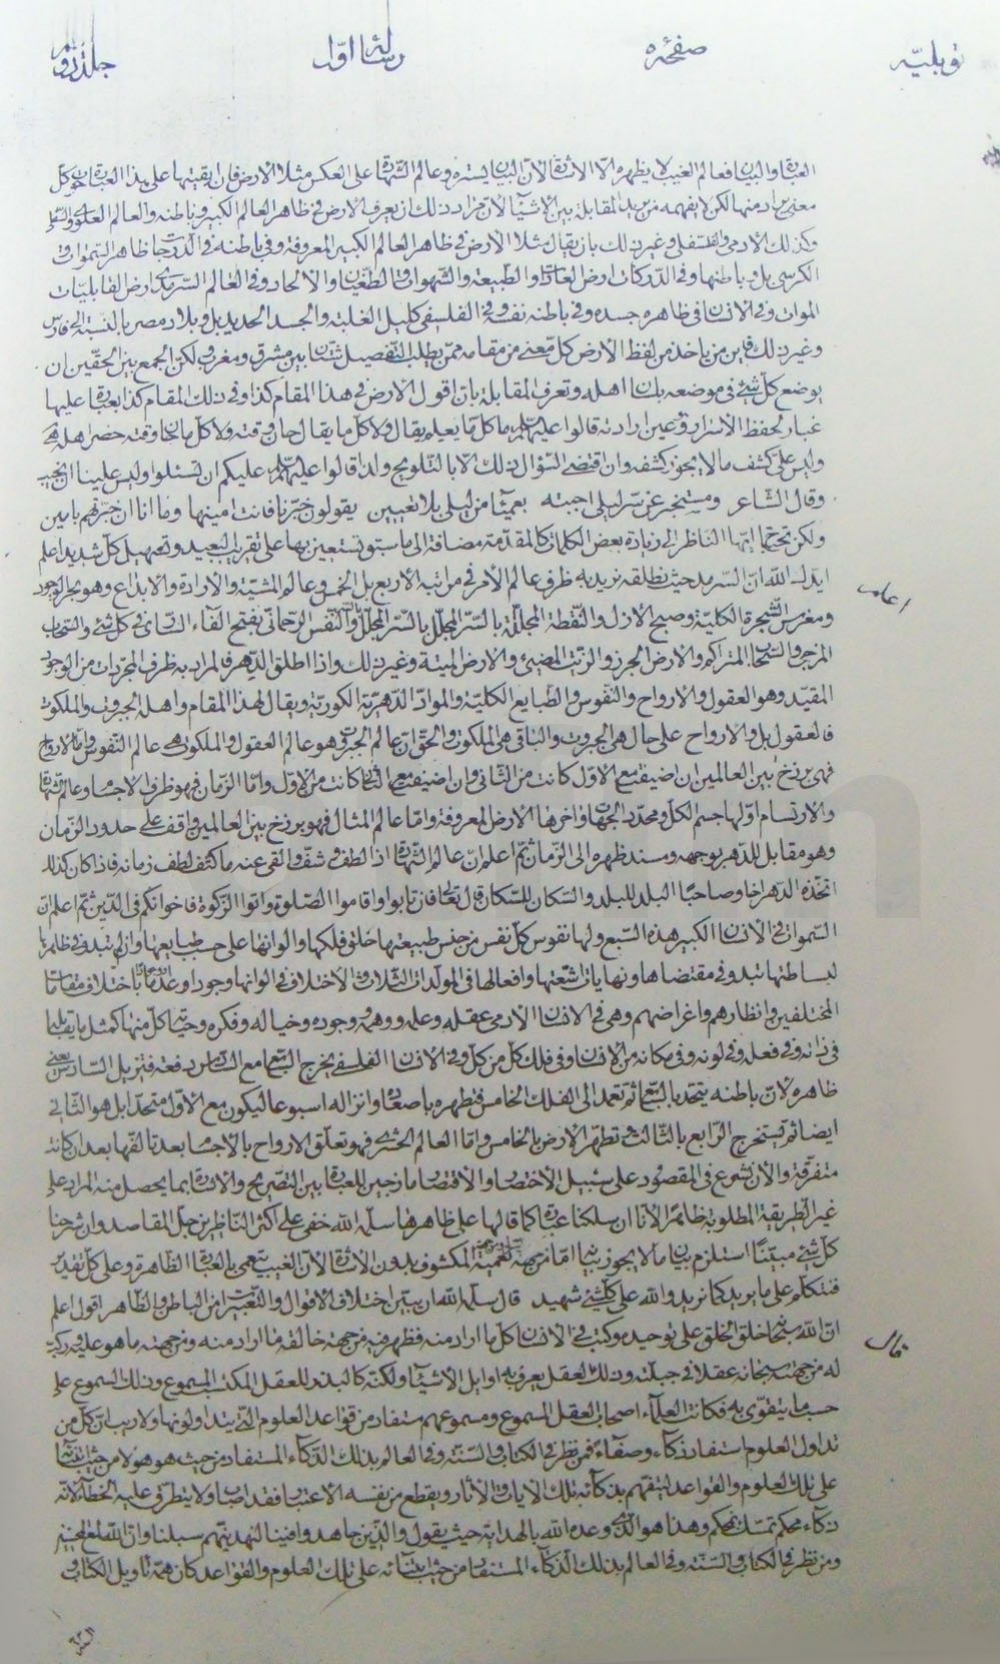 توبلیّه صفحه رسالهٔ اوّل جلد دوّم
العبارة والبيان فعالم الغيب لا يظهره الا الاشارة لانّ البيان يستره وعالم الشهادة على العكس مثلا الارض فان ابقيتها على هذا العبارة كل
معنى يراد منها لكن لا يفهمه من يريد المقابلة بين الاشياء لانّ مراد ذلك ان يعرف الارض فى ظاهر العالم الكبير وباطنه والعالم العلوى والسفلى
وكذلك الادمى والفلسفى وغير ذلك بان يقال مثلا الارض فى ظاهر العالم الكبير المعروفة وفى باطنه فى الدرجات ظاهر السموات و
الكرسى بل وباطنها وفى الدركات ارض العادات والطبيعة والشهوات والطغيان والالحاد وفى العالم السرمدى ارض القابليّات
الموات وفى الانسان فى ظاهره جسده وفى باطنه نفسه وفى الفلسفى كليل الغلبة والجسد الحديد بل وبلاد مصر بالنسبة الى فارس
وغير ذلك فاين من ياخذ من لفظ الارض كل معنى من مقامه ممن يطلب التفصيل شتان بين مشرق ومغرب ولكن الجمع بين الحقّين ان
يوضع كل شئ فى موضعه بلسان اهله وتعرف المقابلة بان اقول الارض فى هذا المقام كذا وفى ذلك المقام كذا بعبارة عليها
غبار لحفظ الاسرار وعين ارادته قالوا عليهم السلام ما كل ما يعلم يقال ولا كل ما يقال حان وقته ولا كل ما حان وقته حضر اهله
وليس على كشف ما لا يجوز كشفه وان اقتضى السؤال ذلك الا بالتلويح ولذا قالوا عليهم السلام عليكم ان تسئلوا وليس علينا ان نجيب
وقال الشاعر ومستخبر عن سرّ ليلى اجبته بعمياء من ليلى بلا تعيين يقولون خبّرنا فانت امينها وما انا ان خبّرتهم بامين
ولكن تحتاج ايها الناظر الى زيادة بعض الكلمات كالمقدمة مضافة الى ما سبق تستعين بها على تقريب البعيد وتسهيل كل شديد اعلم
ايدك الله انّ السرمد حيث نطلقه نريد به ظرف عالم الامر فى مراتبه الاربع بل الخمس وعالم المشيّة والارادة والابداع وهو بحر الوجود
ومغرس الشجرة الكليّة وصبح الازل والنقطة المجلّلة بالسرّ المجلّل بالسرّ المجلّل والنفس الرحمانى بفتح الفاء السارى فى كل شئ والسحاب
المزجى والسحاب المتراكم والارض الجرز والزيت المضيئ والارض الميتة وغير ذلك واذا اطلق الدهر فالمراد به ظرف المجردات من الوجود
المقيّد وهو العقول والارواح والنفوس والطبايع الكلية والمواد الدهرية الكورية ويقال لهذا المقام واهله الجبروت والملكوت
فالعقول بل والارواح على حال هى الجبروت والباقى هى الملكوت والحق انّ عالم الجبروت هو عالم العقول والملكوت هى عالم النفوس وامّا الارواح
فهى برزخ بين العالمين ان اضيفت مع الاوّل كانت من الثانى وان اضيفت مع الثانى كانت من الاوّل وامّا الزمان فهو ظرف الاجسام وعالم الشهادة
والارتسام اوّلها جسم الكل ومحدد الجهات واخرها الارض المعروفة وامّا عالم المثال فهو برزخ بين العالمين واقف على حدود الزمان
وهو مقابل للدهر بوجهه ومسند ظهره الى الزمان ثم اعلم انّ عالم الشهادة اذا لطف وشفّ والقى عنه ما كثف لطف زمانه فاذا كان كذلك
اتخذه الدهر اخا وصاحبا البلد للبلد والسكان للسكان قال تعالى فان تابوا واقاموا الصلوة واتوا الزكوة فاخوانكم فى الدين ثم اعلم انّ
السموات فى الانسان الكبير هذه السبع ولها نفوس كل نفس من جنس طبيعتها خلق فلكها والوانها على حسب طبايعها وان لم تبد فى ظاهرها
لبساطتها تبدو فى مقتضاها ونهايات اشعتها وافعالها فى المولدات الثلاث والاختلاف فى الوانها وجودا وعدما باختلاف مقامات
المختلفين وانظارهم واغراضهم وهى فى الانسان الادمى عقله وعلمه ووهمه ووجوده وخياله وفكره وحياته كل منها كمثل ما يقابلها
فى ذاته وفى فعله وفى لونه وفى مكانه من الانسان وفى فلك كل من كل وفى الانسان الفلسفى يخرج السبع مع السادس دفعة فتنزيل السادس يعنى
ظاهره لانّ باطنه يتحد بالسبع ثم تعمد الى الفلك الخامس فتطهره باصعاد وانزاله اسبوعا ليكون مع الاوّل متحدا بل هو الثانى
ايضا ثم تستخرج الرابع بالثالث وتطهّر الارض بالخامس وامّا العالم الحشرى فهو تعلّق الارواح بالاجسام بعد تالّفها بعد ان كانت
متفرقة والان نشرع فى المقصود على سبيل الاختصار والاقتصار مازجين للعبارة بين التصريح والاشارة بما يحصل منه المراد على
غير الطريقة المطلوبة ظاهرا لانّا ان سلكنا عبارة كما قالها على ظاهرها سلمه الله خفى على اكثر الناظرين جلّ المقاصد وان شرحنا
كل شئ مبيّنا استلزم بيان ما لا يجوز بيانه امّا من جهة تعمية المكشوف بدون الاشارة لانّ الغيب يعمى بالعبارة الظاهرة وعلى كل تقدير
فنتكلم على ما يريد كما نريد والله على كل شئ شهيد قال سلمه الله ان يبيّن اختلاف الاقوال والتعبيرات من الباطن والظاهر اقول اعلم
انّ الله سبحانه خلق الخلق على توحيده وركّب فى الانسان كل ما اراد منه فظهر فيه من جهة خالقه ما اراد منه ومن جهته ما هو عليه وركّب
له من جهته سبحانه عقلا فى جبلته وذلك العقل يعرف به اوايل الاشياء ولكنه كالبذر للعقل المكتسب المسموع وذلك المسموع على
حسب ما يتقوّى به فكانت العلماء اصحاب العقل المسموع ومسموعهم مستفاد من قواعد العلوم التى يتداولونها ولا ريب انّ كل من
تداول العلوم استفاد ذكاء وصفاء فمن نظر فى الكتاب والسنة وفى العالم بذلك الذكاء المستفاد من حيث هو هو لا من حيث ابتنائه
على تلك العلوم والقواعد ليتفهم بذكائه تلك الايات والاثار ويقطع من نفسه الاعتبار فقد اصاب ولا يتطرق عليه الخطاء لانّه
ذكاء محكم تمسك بمحكم وهذا هو الذى وعده الله بالهداية حيث يقول والذين جاهدوا فينا لنهدينهم سبلنا وان الله لمع المحسنين
ومن نظر فى الكتاب والسنة وفى العالم بذلك الذكاء المستفاد من حيث ابتنائه على تلك العلوم والقواعد كان همّه تاويل الكتاب و
اعلم
قال